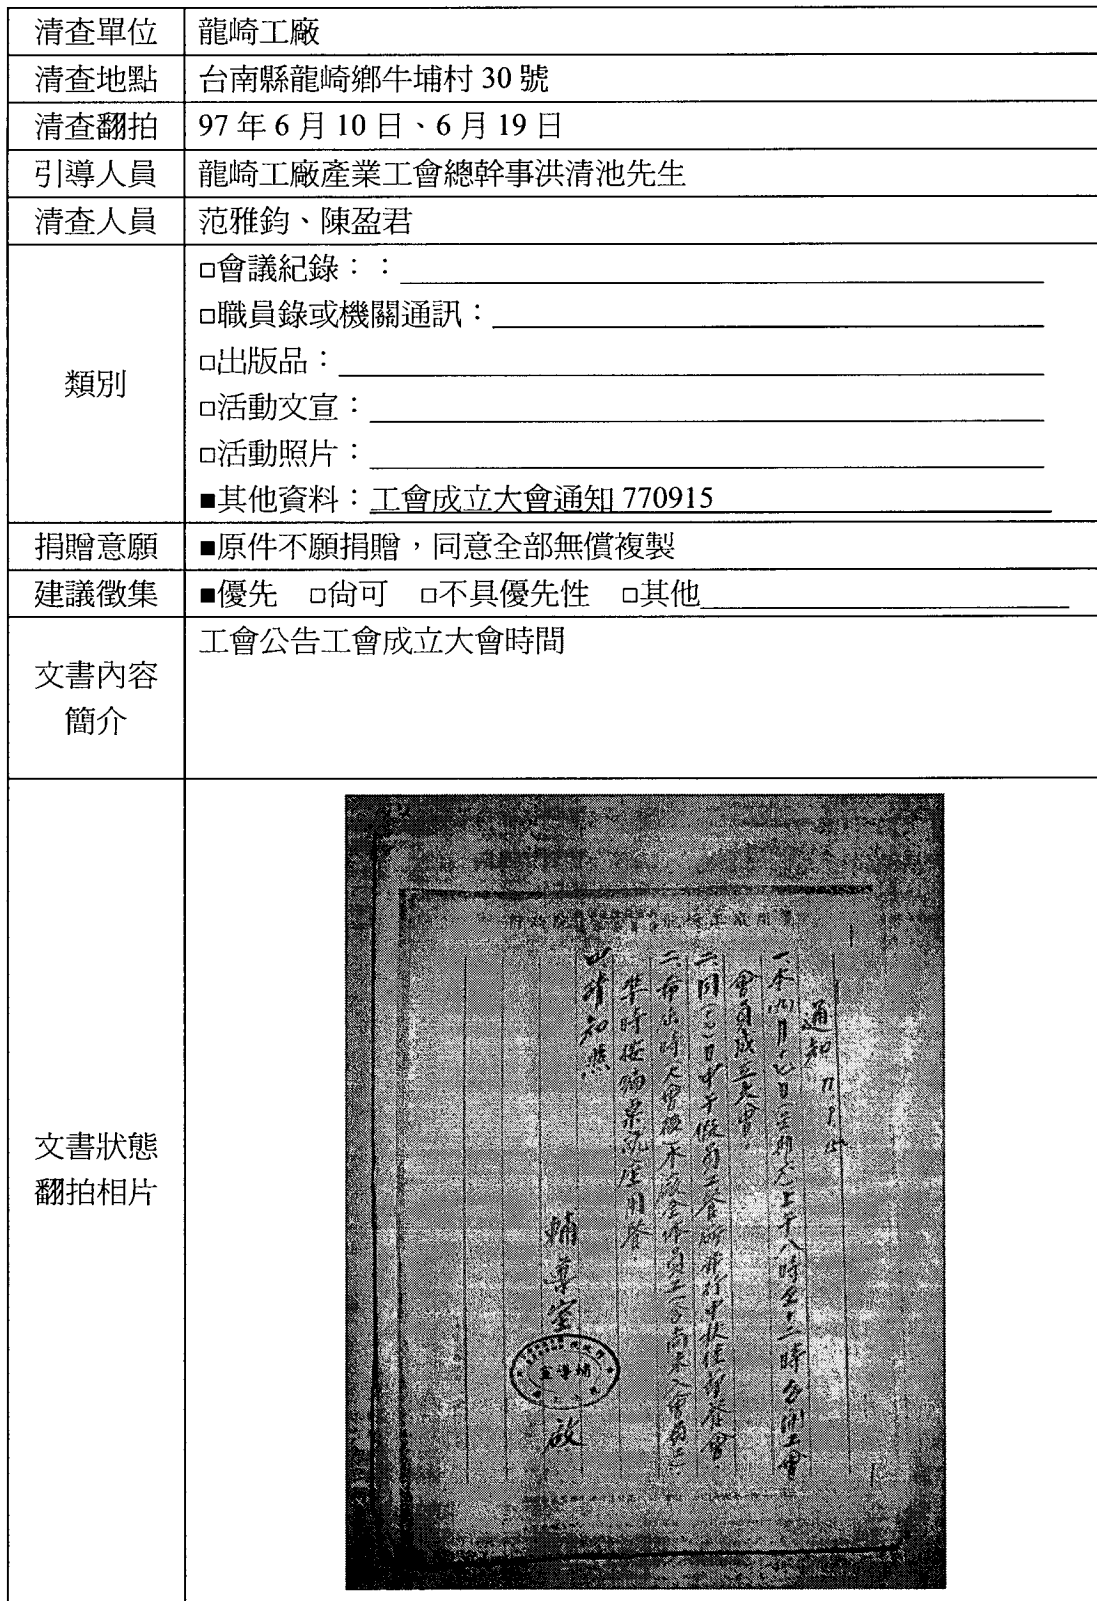 清查單位 龍崎工廠
清查地點 台南縣龍崎鄉牛埔村 30 號
清查翻拍 97 年 6 月 10 日、6 月 19 日
引導人員 龍崎工廠產業工會總幹事洪清池先生
清查人員 范雅鈞、陳盈君
類別
□會議紀錄：：
□職員錄或機關通訊：
□出版品：
□活動文宣：
□活動照片：
■其他資料：工會成立大會通知 770915
捐贈意願 ■原件不願捐贈，同意全部無償複製
建議徵集 ■優先 □尚可 □不具優先性 □其他
文書內容
簡介
工會公告工會成立大會時間
文書狀態
翻拍相片
通知
一、本(九)月十七日 上午八時至十二時召開工會
會員成立大會。
二、同(十七)日中午假員工餐廳舉行中秋佳節餐會。
準時 就座用餐。
請知照
輔導室 啟
輔導室